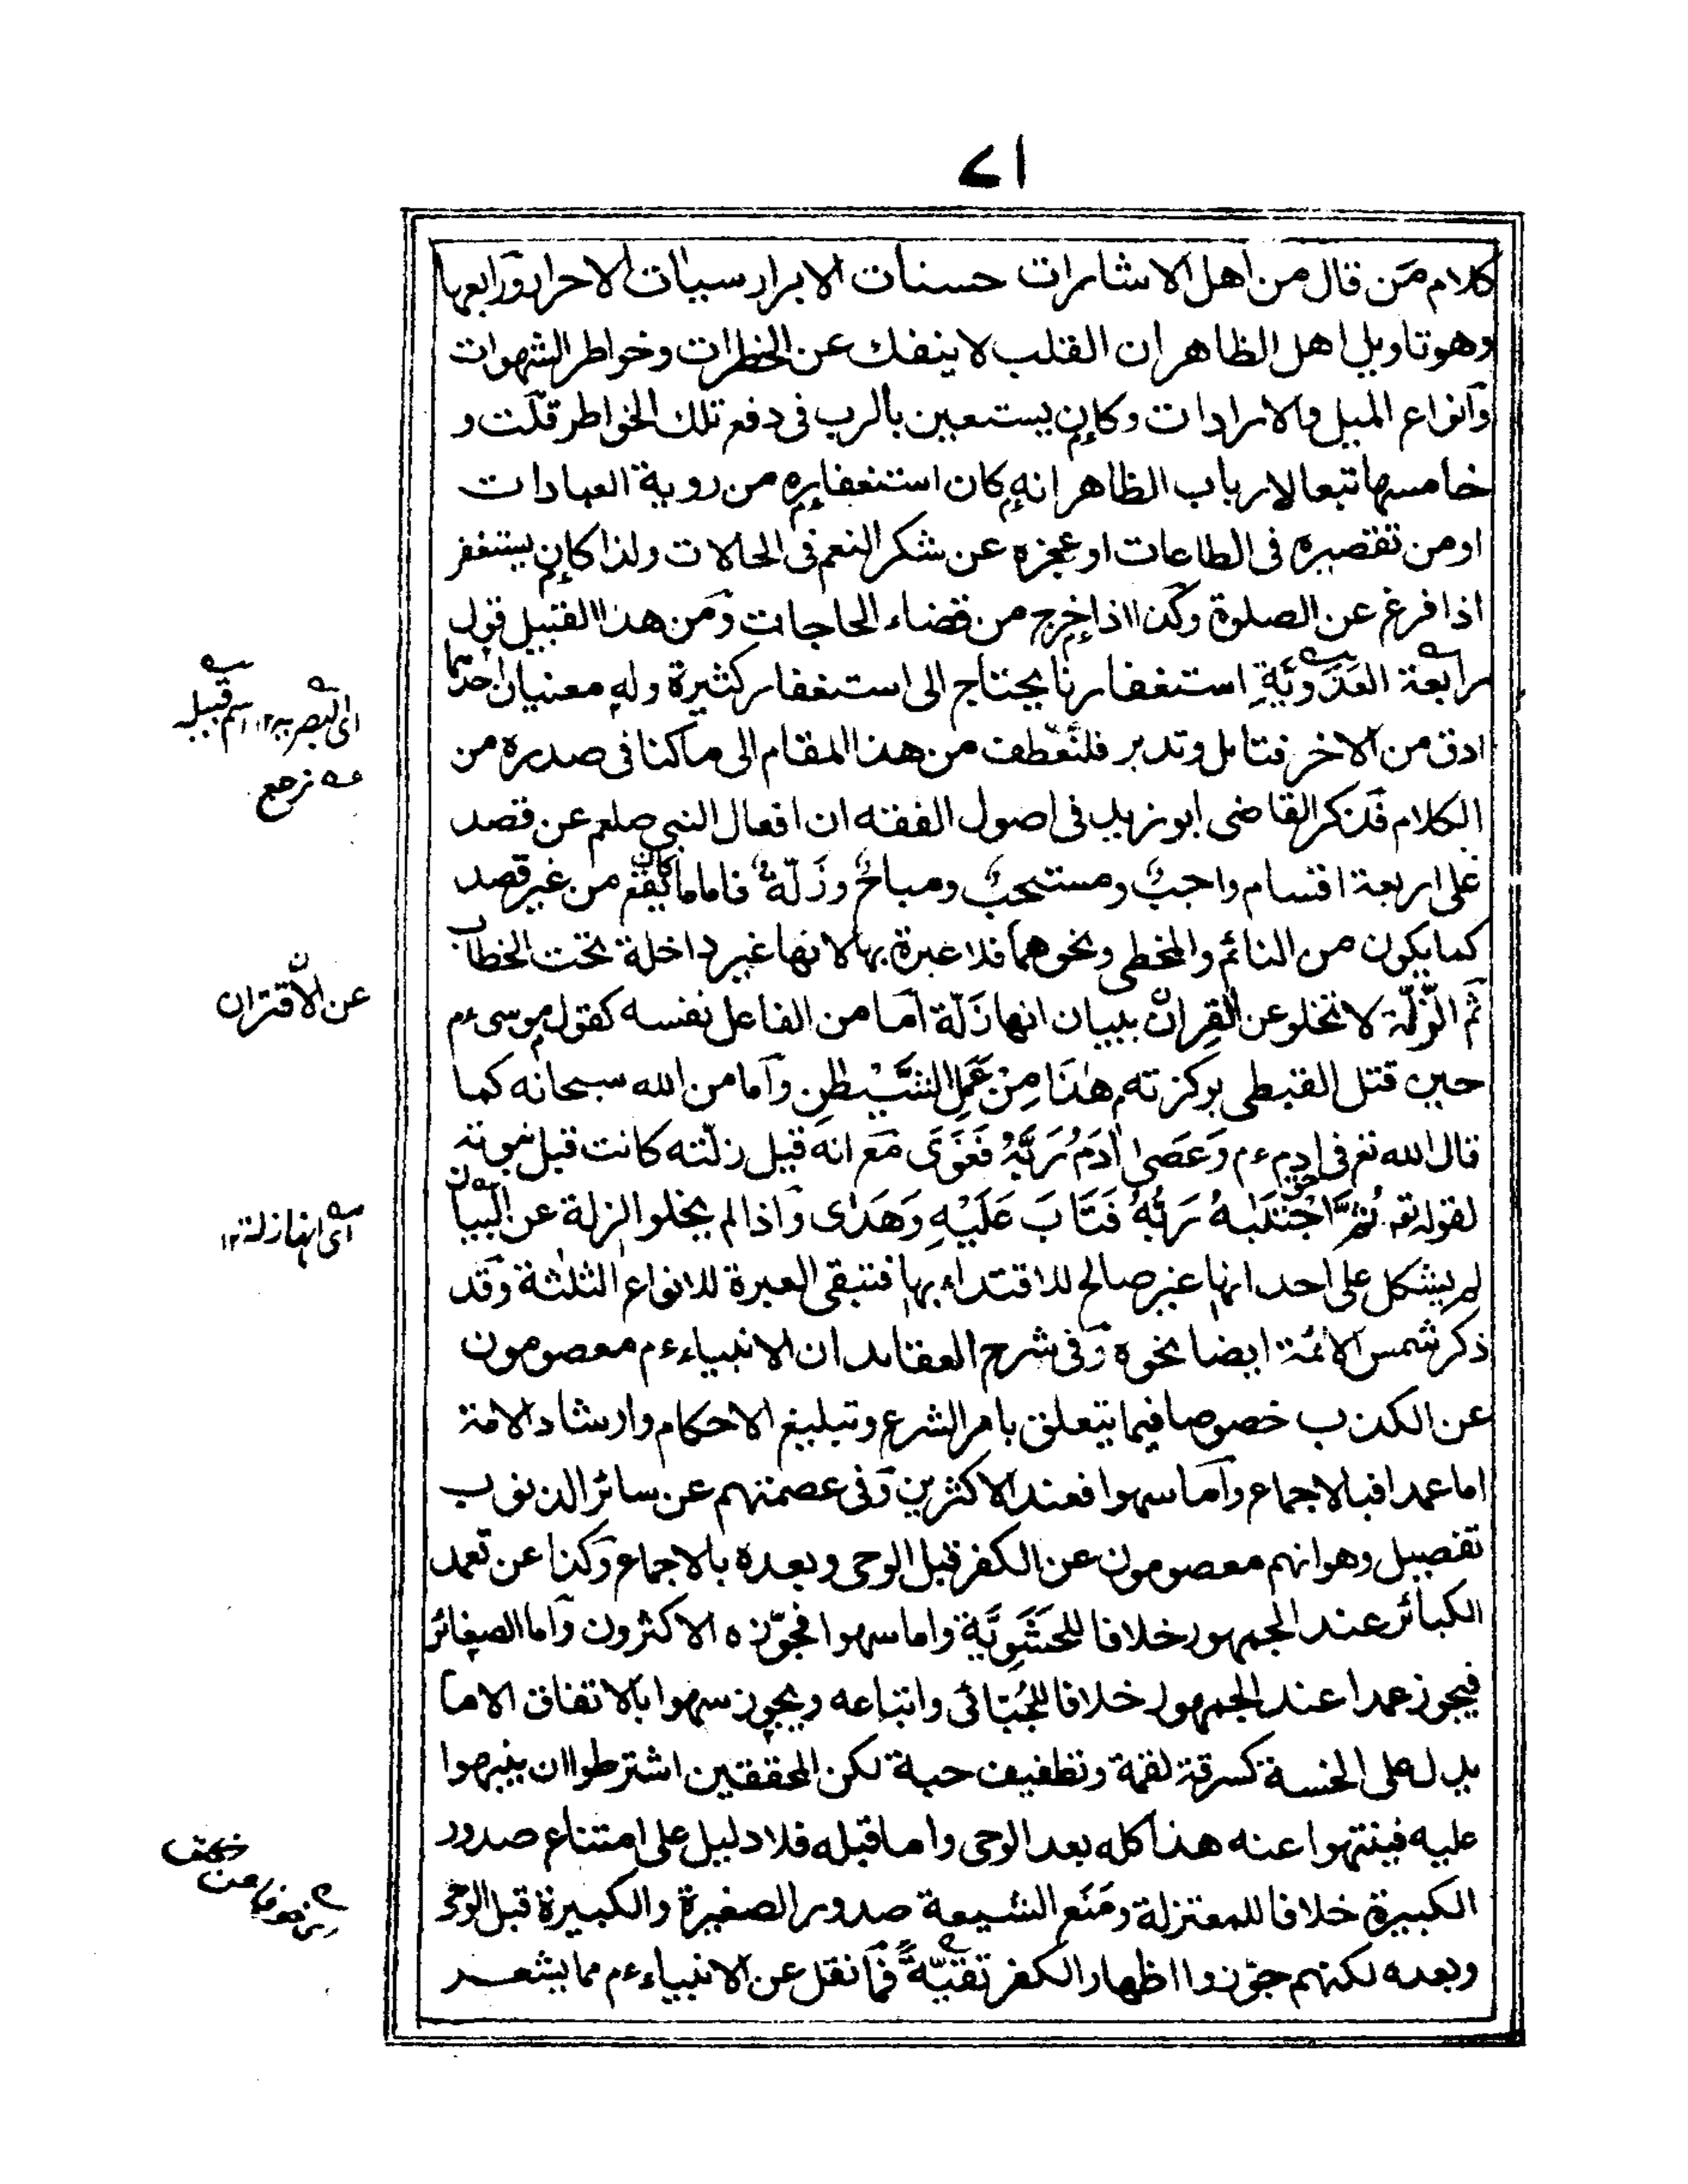 ا٧
كلام من قال من اهل الاشارات حسنات الابرار سيئات الاحرار ورابعها
وهو تاويل اهل الظاهر ان القلب لا ينفك عن الخطرات وخواطر الشهوات
وانواع الميل والارادات وكان يستعين بالرب فى دفع تلك الخواطر قلت و
خامسها تبعا لارباب الظاهر انه كان استغفاره من روية العبادات
او من تقصيره فى الطاعات او عجزه عن شكر النعم فى الحالات ولذا كان يستغفر
اذا فرغ عن الصلوة وكذا اذا خرج من قضاء الحاجات ومن هذا القبيل قول
رابعة العَدَوِيَّةِ استغفارنا يحتاج الى استغفار كثيرة وله معنيان احدهما
ادق من الاخر فتامل وتدبر فلنعطف من هذا المقام الى ما كنا فى صدره من
الكلام فذكر القاضى ابو زيد فى اصول الفقه ان افعال النبى صلعم عن قصد
على اربعة اقسام واجبٌ ومستحبٌ ومباحٌ وزَلّةٌ فاما ما كان يقع من غير قصد
كما يكون من النائم والمخطى ونحوهما فلا عبرة بها لانها غير داخلة تحت الخطاب
ثم الزّلّة لا تخلو عن القِران ببيان انها زَلّة اما من الفاعل نفسه كقول موسى ءم
حين قتل القبطى بوكزته هٰذَا مِنْ عَمَلِ الشَّيْطٰنِ واما من الله سبحانه كما
قال الله تع فى ادم ءم وَعَصٰى اٰدَمُ رَبَّهٗ فَغَوٰى مع انه قيل زلّته كانت قبل نبوته
لقوله تع ثُمَّ اجْتَبٰهُ رَبُّهٗ فَتَابَ عَلَيْهِ وَهَدٰى واذا لم يخلو الزلة عن البيان
لم يشكل على احد انها غير صالح للاقتداء بها فتبقى العبرة للانواع الثلٰثة وقد
ذكر شمس الائمة ايضا نحوه وفى شرح العقائد ان الانبياء ءم معصومون
عن الكذب خصوصا فيما يتعلق بامر الشرع وتبليغ الاحكام وارشاد الامة
اما عمدا فبالاجماع واما سهوا فعند الاكثرين وفى عصمتهم عن سائر الذنوب
تفصيل وهو انهم معصومون عن الكفر قبل الوحى وبعده بالاجماع وكذا عن تعمد
الكبائر عند الجمهور خلافا للحَشَوِيَّة واما سهوا فجوّزه الاكثرون واما الصغائر
فيجوز عمدا عند الجمهور خلافا للجُبّائى واتباعه ويجوز سهوا بالاتفاق الا ما
يدل على الخسة كسرقة لقمة وتطفيف حبة لكن المحققين اشترطوا ان ينبهوا
عليه فينتهوا عنه هذا كله بعد الوحى واما قبله فلا دليل على امتناع صدور
الكبيرة خلافا للمعتزلة ومَنَع الشيعة صدور الصغيرة والكبيرة قبل الوحى
وبعده لكنهم جوّزوا اظهار الكفر تقيّةً فما نقل عن الانبياء ءم مما يشعر
اى البصرية ١٢
اسم قبيله
نرجع
عن الاقتران
اى انها زلة ١٢